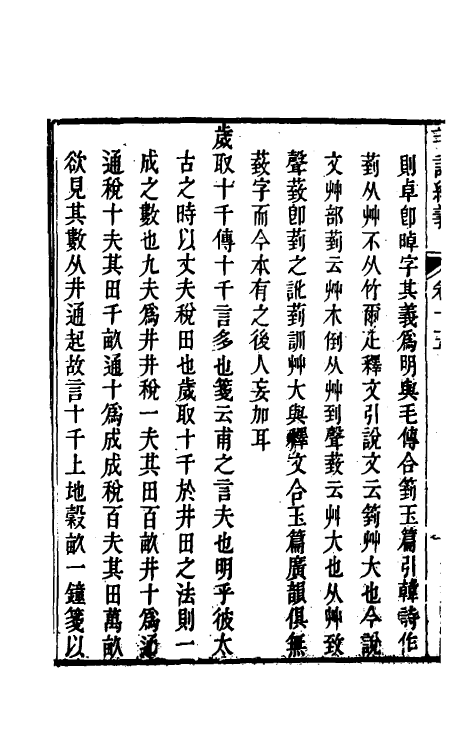 則卓卽晫字其義爲明與毛傳合箌玉篇引韓詩作
菿从艸不从竹爾疋釋文引說文云箌艸大也今說
文艸部菿云艸木倒从艸到聲蔱云艸大也从艸致
聲蔱卽菿之訛菿訓艸大與釋文合玉篇廣韻俱無
蔱字而今本有之後人妄加耳
歲取十千傳十千言多也箋云甫之言夫也明乎彼太
古之時以丈夫稅田也歲取十千於井田之法則一
成之數也九夫爲井井稅一夫其田百畝井十爲通
通稅十夫其田千畝通十爲成成稅百夫其田萬畝
欲見其數从井通起故言十千上地穀畝一鐘箋以